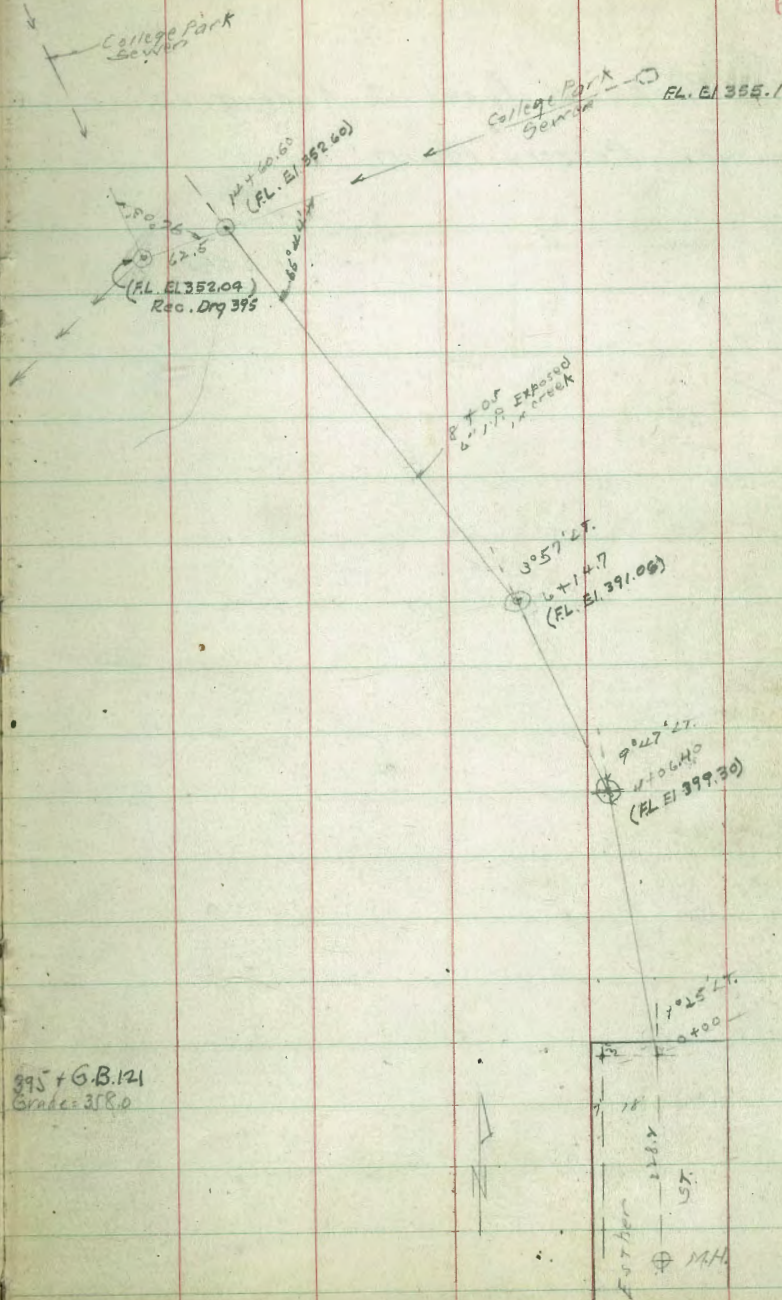 College Park
Sewer
College Park
Sewer
F.L. El 355.1
14+60.60
(F.L. El. 352.60)
62.5
(F.L. El. 352.04)
Rec. Drg 395
8+05
6" I.P. Exposed
in creek
3°57' LT.
6+14.7
(F.L. El. 391.06)
9°47' LT.
4+06.40
(F.L. El 399.30)
7°25' LT.
0+00
395 + G.B. 121
Grade = 358.0
N
Esther
ST.
M.H.